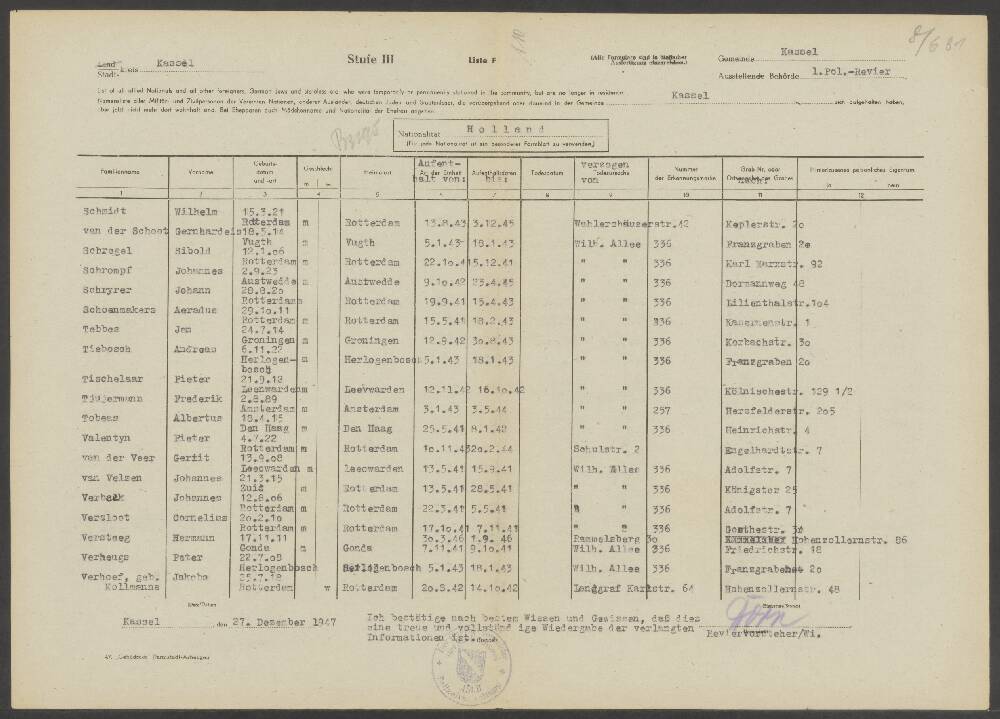 8/6 81
Land-
Stadt- kreis Kassel
Stufe III
Liste F
(Alle Formulare sind in vierfacher
Ausfertigung einzureichen.)
Gemeinde Kassel
Ausstellende Behörde 1.Pol.-Revier
List of all allied Nationals and all other foreigners, German Jews and stateless etc. who were temporarily or permanently stationed in the community, but are no longer in residence.
Namensliste aller Militär- und Zivilpersonen der Vereinten Nationen, anderer Ausländer, deutschen Juden und Staatenloser, die vorübergehend oder dauernd in der Gemeinde Kassel sich aufgehalten haben,
aber jetzt nicht mehr dort wohnhaft sind. Bei Ehepaaren auch Mädchenname und Nationalität der Ehefrau angeben.
Nationalität Holland
(Für jede Nationalität ist ein besonderes Formblatt zu verwenden)
Familienname Vorname Geburts-datum und -ort Geschlecht m w Heimatort Aufent-halt von: Aufenthaltsdaten bis: Todesdatum verzogen von Todesursache Nummer der Erkennungsmarke Grab Nr. oder nach: Hinterlassenes persönliches Eigentum ja nein
1 2 3 4 5 6 7 8 9 10 11 12
Schmidt Wilhelm 15.3.21 Rotterdam m Rotterdam 13.8.43 3.12.45 Wahlershäuserstr.42 Keplerstr. 2o
van der Schoot Gernhardeis 18.5.14 Vugth m Vugth 5.1.43 18.1.43 Wilh. Allee 336 Franzgraben 2o
Schregel Sibold 12.1.o6 Rotterdam m Rotterdam 22.1o.41 5.12.41 " " 336 Karl Marxstr. 92
Schrompf Johannes 2.9.23 Austwedde m Austwedde 9.1o.42 23.4.45 " " 336 Dormannweg 48
Schryrer Johann 28.8.2o Rotterdam m Rotterdam 19.9.41 15.4.43 " " 336 Lilienthalstr.1o4
Schoenmakers Aeradus 29.1o.11 Rotterdam m Rotterdam 15.5.41 18.2.43 " " 336 Kasernenstr. 1
Tebbes Jan 24.7.14 Groningen m Groningen 12.9.42 3o.8.43 " " 336 Korbachstr. 3o
Tiebosch Andreas 6.11.22 Herlogen-bosch m Herlogenbosch 5.1.43 18.1.43 " " 336 Franzgraben 2o
Tischelaar Pieter 21.9.18 Leenwarden m Leevwarden 12.11.42 16.1o.42 " " 336 Kölnischestr. 129 1/2
Tjuijermann Frederik 2.8.89 Amsterdam m Amsterdam 3.1.43 3.5.44 " " 257 Herzfelderstr. 2o5
Tobeas Albertus 18.4.15 Den Haag m Den Haag 25.5.41 8.1.42 " " 336 Heinrichstr. 4
Valentyn Pieter 4.7.22 Rotterdam m Rotterdam 1o.11.43 2o.2.44 Schulstr. 2 Engelhardtstr. 7
van der Veer Gerrit 13.9.o8 Leeowarden m leeowarden 13.5.41 15.9.41 Wilh. Allee 336 Adolfstr. 7
van Velzen Johannes 21.3.15 Zuit m Rotterdam 13.5.41 28.5.41 " " 336 Königstor 25
Verbaak Johannes 12.8.o6 Rotterdam m Rotterdam 22.3.41 5.5.41 " " 336 Adolfstr. 7
Versloot Cornelius 2o.2.1o Rotterdam m Rotterdam 17.1o.41 7.11.41 " " 336 Goethestr.
Versteeg Hermann 17.11.11 Gonda m Gonda 3o.3.46 1.9. 46 Rammelsberg 3o Hohenzollernstr. 86
7.11.41 9.1o.41 Wilh. Allee 336 Friedrichstr. 18
Verheugs Peter 22.7.o8 Herlogenbosch Herlogenbosch 5.1.43 18.1.43 Wilh. Allee 336 Franzgraben 2o
Verhoef, geb. Kollmanns Jakoba 25.7.18 Rotterdam w Rotterdam 2o.8.42 14.1o.42 Landgraf Karlstr. 64 Hohenzollernstr. 48
(Ort/Datum)
Kassel, den 27. Dezember 1947
Ich bestätige nach bestem Wissen und Gewissen, daß dies
eine treue und vollständ ige Wiedergabe der verlangten
Informationen ist.
Reviervorsteher/Wi.